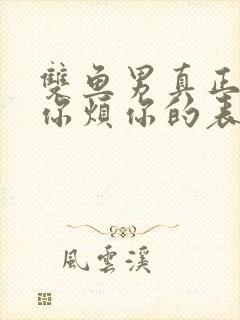 雙魚男真正
你煩你的表
風雲溪